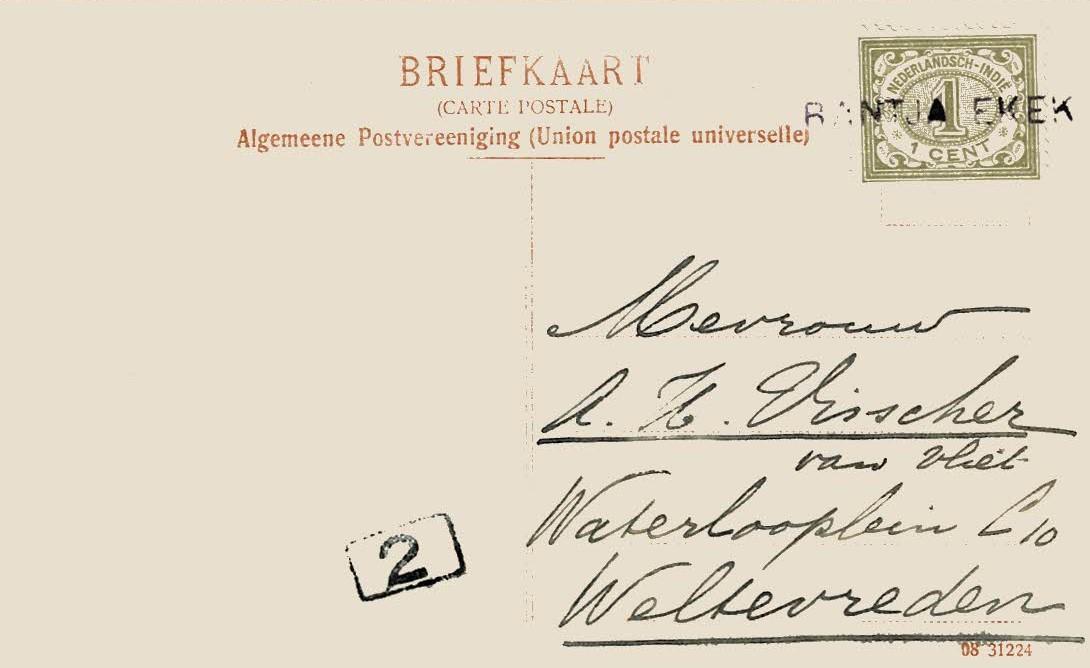 BRIEFKAART
(CARTE POSTALE)
Algemeene Postvereeniging (Union postale universelle)
NEDERLANDSCH-INDIË
1
1 CENT
RANTJA EKEK
Mevrouw
A. H. Visscher
van Vliet
Waterlooplein C 10
Weltevreden
2
08 31224